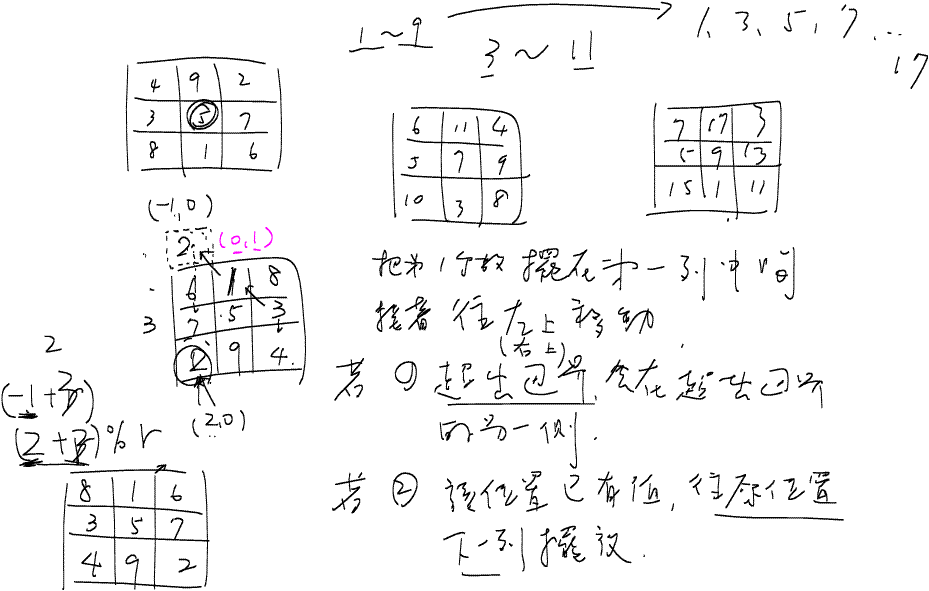 1~9 → 1、3、5、7…17
3~11
4 9 2
3 5 7
8 1 6
6 11 4
5 7 9
10 3 8
7 17 3
5 9 13
15 1 11
(-1,0)
2 (0,1)
6 1 8
7 5 3
2 9 4
3
(2,0)
2
(-1+3)
(2+3)%r
8 1 6
3 5 7
4 9 2
把第1个数擺在第一列中间
接著往左上移动
(右上)
若①超出边界,会在超出边界
的另一側.
若②該位置已有值,往原位置
下一列擺放.